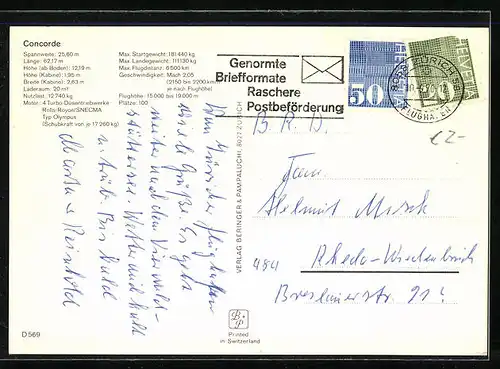 Concorde
Spannweite: 25,60 m
Länge: 62,17 m
Höhe (ab Boden): 12,19 m
Höhe (Kabine): 1,95 m
Breite (Kabine): 2,63 m
Laderaum: 20 m³
Nutzlast: 12 740 kg
Motor: 4 Turbo-Düsentriebwerke
Rolls-Royce/SNECMA
Typ Olympus
(Schubkraft von je 17 260 kg)
Max. Startgewicht: 181 440 kg
Max. Landegewicht: 111 130 kg
Max. Flugdistanz: 6 500 km
Geschwindigkeit: Mach 2,05
(2150 bis 2200 km/h
je nach Flughöhe)
Flughöhe: 15 000 bis 19 000 m
Plätze: 100
Genormte
Briefformate
Raschere
Postbeförderung
HELVETIA
50
8058 ZÜRICH 58
FLUGHAFEN
€2-
Vom Züricher Flughafen
Grüße. Es geht
weiter nach dem Vierwald-
stättersee. Wetter
u. trüb. Bis bald
Reinhold
VERLAG BERINGER & PAMPALUCHI, 8027 ZÜRICH
B.R.D.
Fam.
Helmut
484 Rheda-Wiedenbrück
Breslauerstr. 91
B P
Printed
in Switzerland
D 569